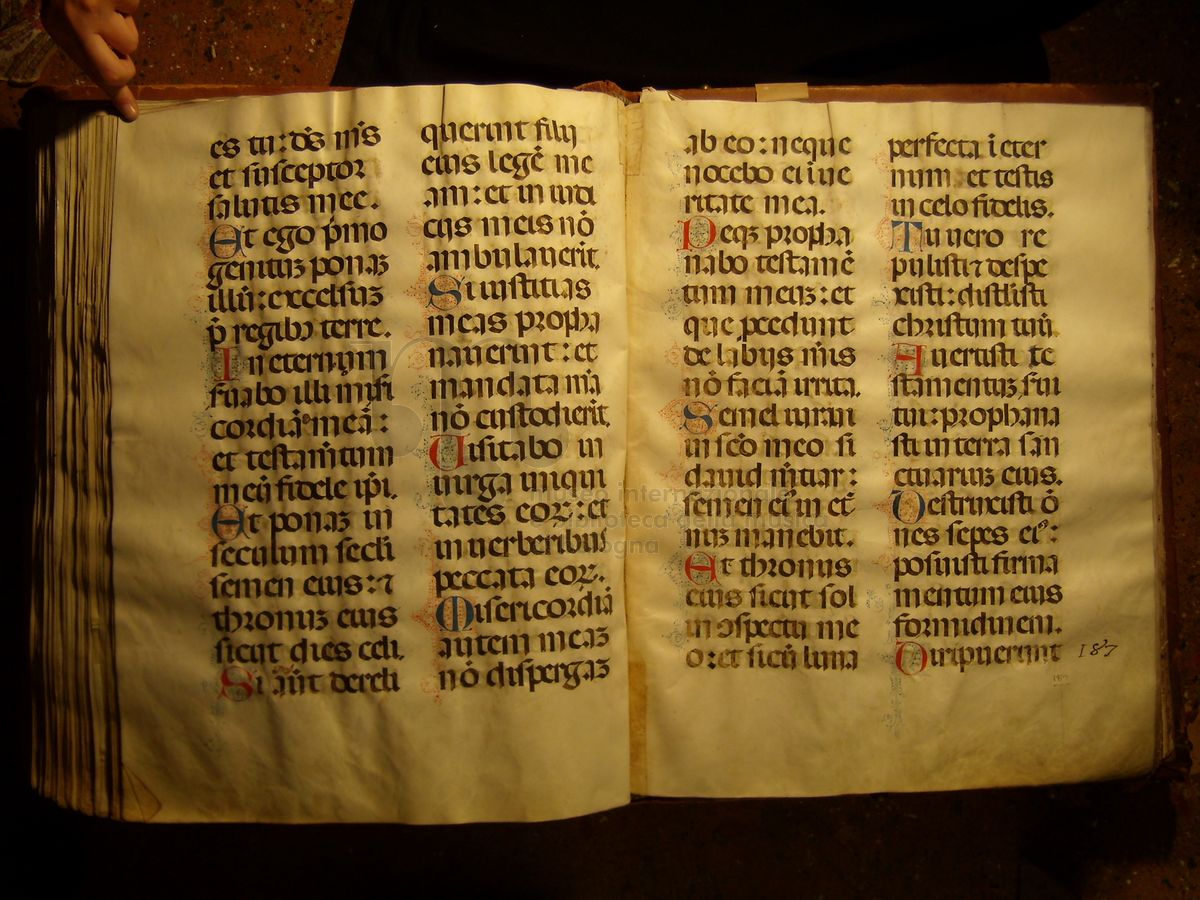 es tu: ds ms
et susceptor
salutis mee.
Et ego pmo
genituz ponaz
illu: excelsuz
p regibꝫ terre.
In eternum
seruabo illi misi
cordiā meā:
et testam̄tum
meū fidele ipi.
Et ponaz in
seculum secli
semen eius: ⁊
thronuz eius
sicut dies celi.
Si aūt dereli
querint filij
eius legē me
am: et in iudi
cijs meis nō
ambulauerit.
Si iustitias
meas propha
nauerint: et
mandata m̄a
nō custodierit.
Uisitabo in
uirga iniqui
tates eoꝝ: et
in uerberibus
peccata eoꝝ.
Misericordiā
autem meaz
nō dispergaz
ab eo: neque
nocebo ei i ue
ritate mea.
Neqꝫ propha
nabo testamē
tum meuz: et
que pcedunt
de labijs m̄is
nō faciā irrita.
Semel iuraui
in scō meo si
dauid m̄tiar:
semen eiꝰ in et̄
nuz manebit.
Et thronus
eius sicut sol
in ɔspectu me
o: et sicū luna
perfecta i eter
num et testis
in celo fidelis.
Tu uero re
pulisti ⁊ despe
xisti: distlisti
christum tuū.
Auertisti te
stamentuz sui
tui: prophana
sti in terra san
ctuariuz eius.
Destruxisti ō
nes sepes eiꝰ:
posuisti firma
mentum eius
formidinem.
Diripuerunt
187
187
museo internazionale
e biblioteca della musica